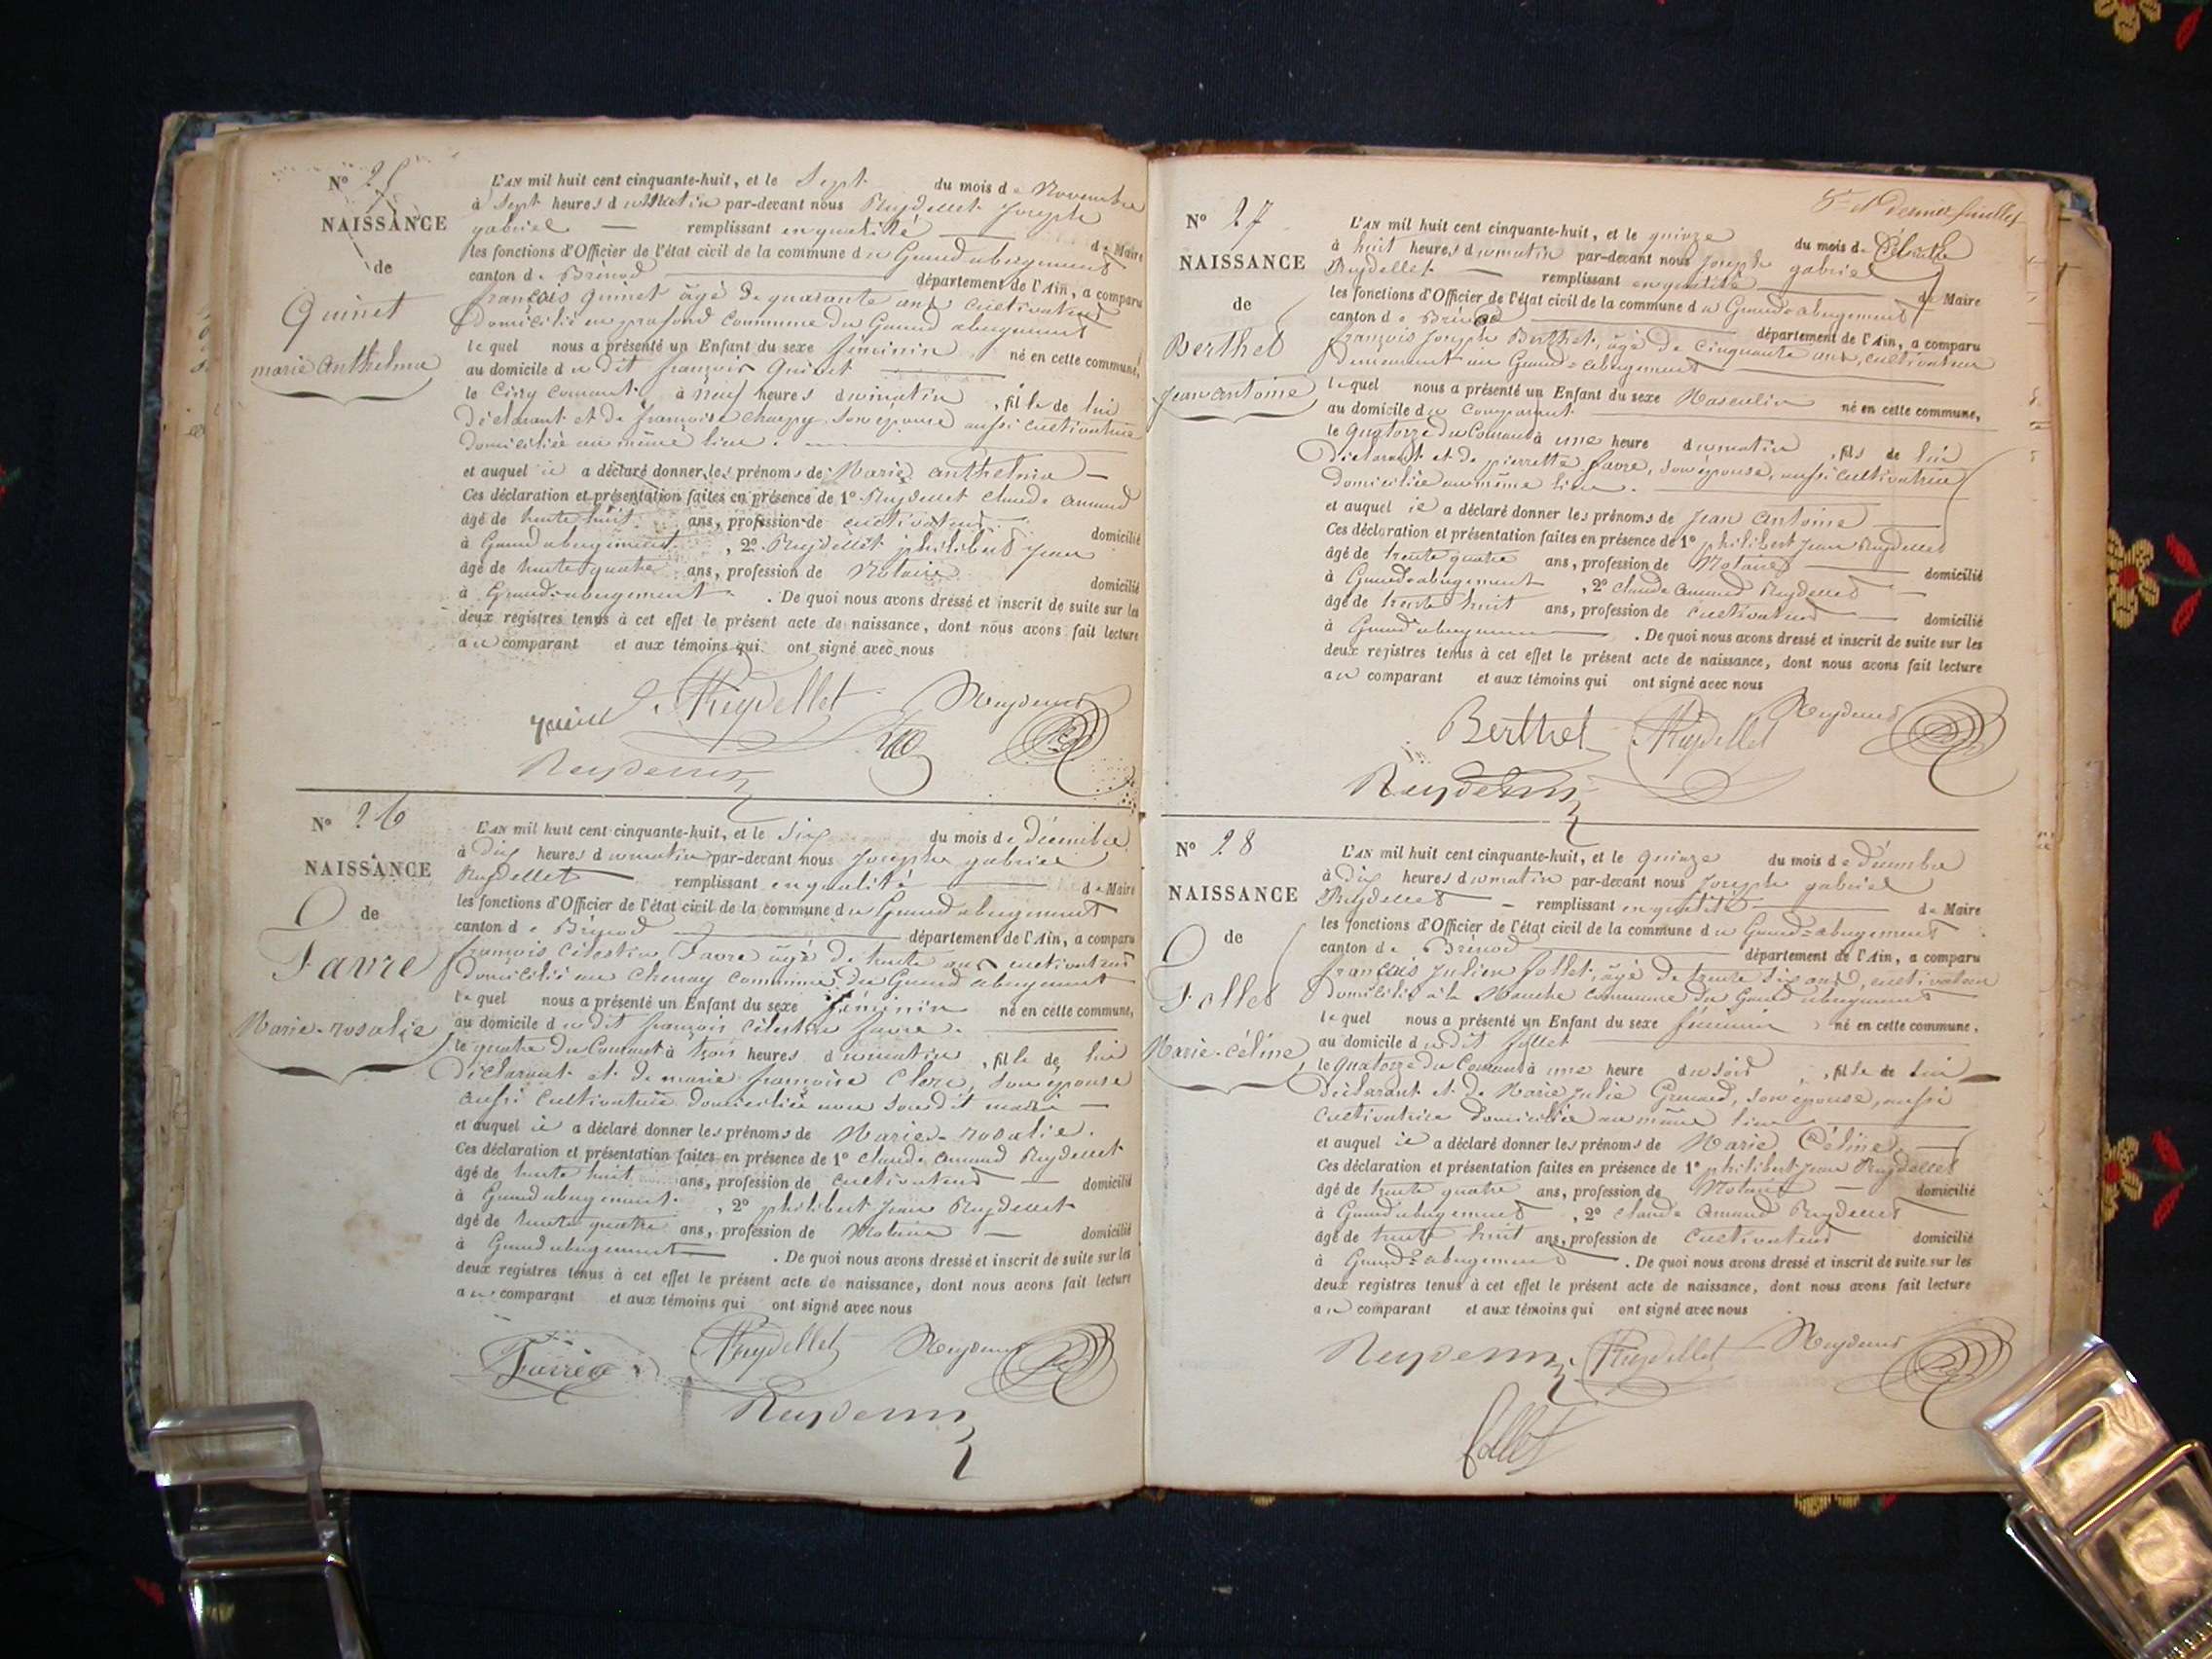 N° 25
NAISSANCE
de
Quinet
marie anthelma
L'AN mil huit cent cinquante-huit, et le Sept du mois de Novembre
à Sept heures du Matin par-devant nous Reydellet Joseph
gabriel — remplissant en qualité de Maire
les fonctions d'Officier de l'état civil de la commune du Grand abergement
canton de Brénod département de l'Ain, a comparu
françois Quinet âgé de quarante ans cultivateur
domicilié en profond commune du Grand abergement
lequel nous a présenté un Enfant du sexe féminin né en cette commune,
au domicile du dit françois Quinet
le Cinq courant à neuf heures du matin, fille de lui
Déclarant et de françoise charpy son épouse aussi cultivatrice
domiciliée au même lieu.
et auquel il a déclaré donner les prénoms de Marie anthelma —
Ces déclaration et présentation faites en présence de 1° Reydellet claude armand
âgé de trente huit ans, profession de cultivateur domicilié
à Grand abergement, 2° Reydellet philibert jean
âgé de trente quatre ans, profession de Notaire domicilié
à Grand-abergement. De quoi nous avons dressé et inscrit de suite sur les
deux registres tenus à cet effet le présent acte de naissance, dont nous avons fait lecture
au comparant et aux témoins qui ont signé avec nous
Reydellet
N° 26
NAISSANCE
de
Favre
Marie-rosalie
L'AN mil huit cent cinquante-huit, et le Six du mois de décembre
à dix heures du matin par-devant nous Joseph gabriel
Reydellet remplissant en qualité de Maire
les fonctions d'Officier de l'état civil de la commune du Grand abergement
canton de Brénod département de l'Ain, a comparu
françois Célestin Favre âgé de trente ans cultivateur
domicilié au Chenay commune du Grand abergement
lequel nous a présenté un Enfant du sexe féminin né en cette commune,
au domicile du dit françois Célestin favre.
le quatre du Courant à trois heures du matin, fille de lui
Déclarant et de marie françoise Clerc, son épouse
aussi Cultivatrice domiciliée avec son dit mari —
et auquel il a déclaré donner les prénoms de Marie-rosalie.
Ces déclaration et présentation faites en présence de 1° claude armand Reydellet
âgé de trente huit ans, profession de cultivateur — domicilié
à Grand abergement, 2° philibert Jean Reydellet
âgé de trente quatre ans, profession de Notaire — domicilié
à Grand abergement. De quoi nous avons dressé et inscrit de suite sur les
deux registres tenus à cet effet le présent acte de naissance, dont nous avons fait lecture
au comparant et aux témoins qui ont signé avec nous
Reydellet
5e et dernier feuillet
N° 27
NAISSANCE
de
Berthet
Jean antoine
L'AN mil huit cent cinquante-huit, et le quinze du mois de Décembre
à huit heures du matin par-devant nous Joseph gabriel
Reydellet — remplissant en qualité de Maire
les fonctions d'Officier de l'état civil de la commune du Grand-abergement
canton de Brénod département de l'Ain, a comparu
françois Joseph Berthet, âgé de cinquante ans, cultivateur
demeurant au Grand-abergement
lequel nous a présenté un Enfant du sexe Masculin né en cette commune,
au domicile du comparant
le quatorze du Courant à une heure du matin, fils de lui
Déclarant et de pierrette favre, son épouse, aussi cultivatrice
domiciliée au même lieu.
et auquel il a déclaré donner les prénoms de Jean antoine
Ces déclaration et présentation faites en présence de 1° philibert Jean Reydellet
âgé de trente quatre ans, profession de Notaire domicilié
à Grand-abergement, 2° claude armand Reydellet —
âgé de trente huit ans, profession de cultivateur — domicilié
à Grand abergement. De quoi nous avons dressé et inscrit de suite sur les
deux registres tenus à cet effet le présent acte de naissance, dont nous avons fait lecture
au comparant et aux témoins qui ont signé avec nous
Berthet Reydellet
N° 28
NAISSANCE
de
Follet
Marie-céline
L'AN mil huit cent cinquante-huit, et le quinze du mois de Décembre
à dix heures du matin par-devant nous Joseph gabriel
Reydellet — remplissant en qualité de Maire
les fonctions d'Officier de l'état civil de la commune du Grand=abergement
canton de Brénod département de l'Ain, a comparu
français Julien follet, âgé de trente six ans, cultivateur
domicilié à la Manche commune du Grand abergement
lequel nous a présenté un Enfant du sexe féminin né en cette commune.
au domicile du dit follet
le quatorze du Courant à une heure du soir, fille de lui
Déclarant et de Marie Julie Grenard, son épouse, aussi
cultivatrice domiciliée au même lieu
et auquel il a déclaré donner les prénoms de Marie Céline
Ces déclaration et présentation faites en présence de 1° philibert jean Reydellet
âgé de trente quatre ans, profession de Notaire — domicilié
à Grand abergement, 2° claude armand Reydellet
âgé de trente huit ans, profession de Cultivateur domicilié
à Grand=abergement. De quoi nous avons dressé et inscrit de suite sur les
deux registres tenus à cet effet le présent acte de naissance, dont nous avons fait lecture
au comparant et aux témoins qui ont signé avec nous
Reydellet
follet